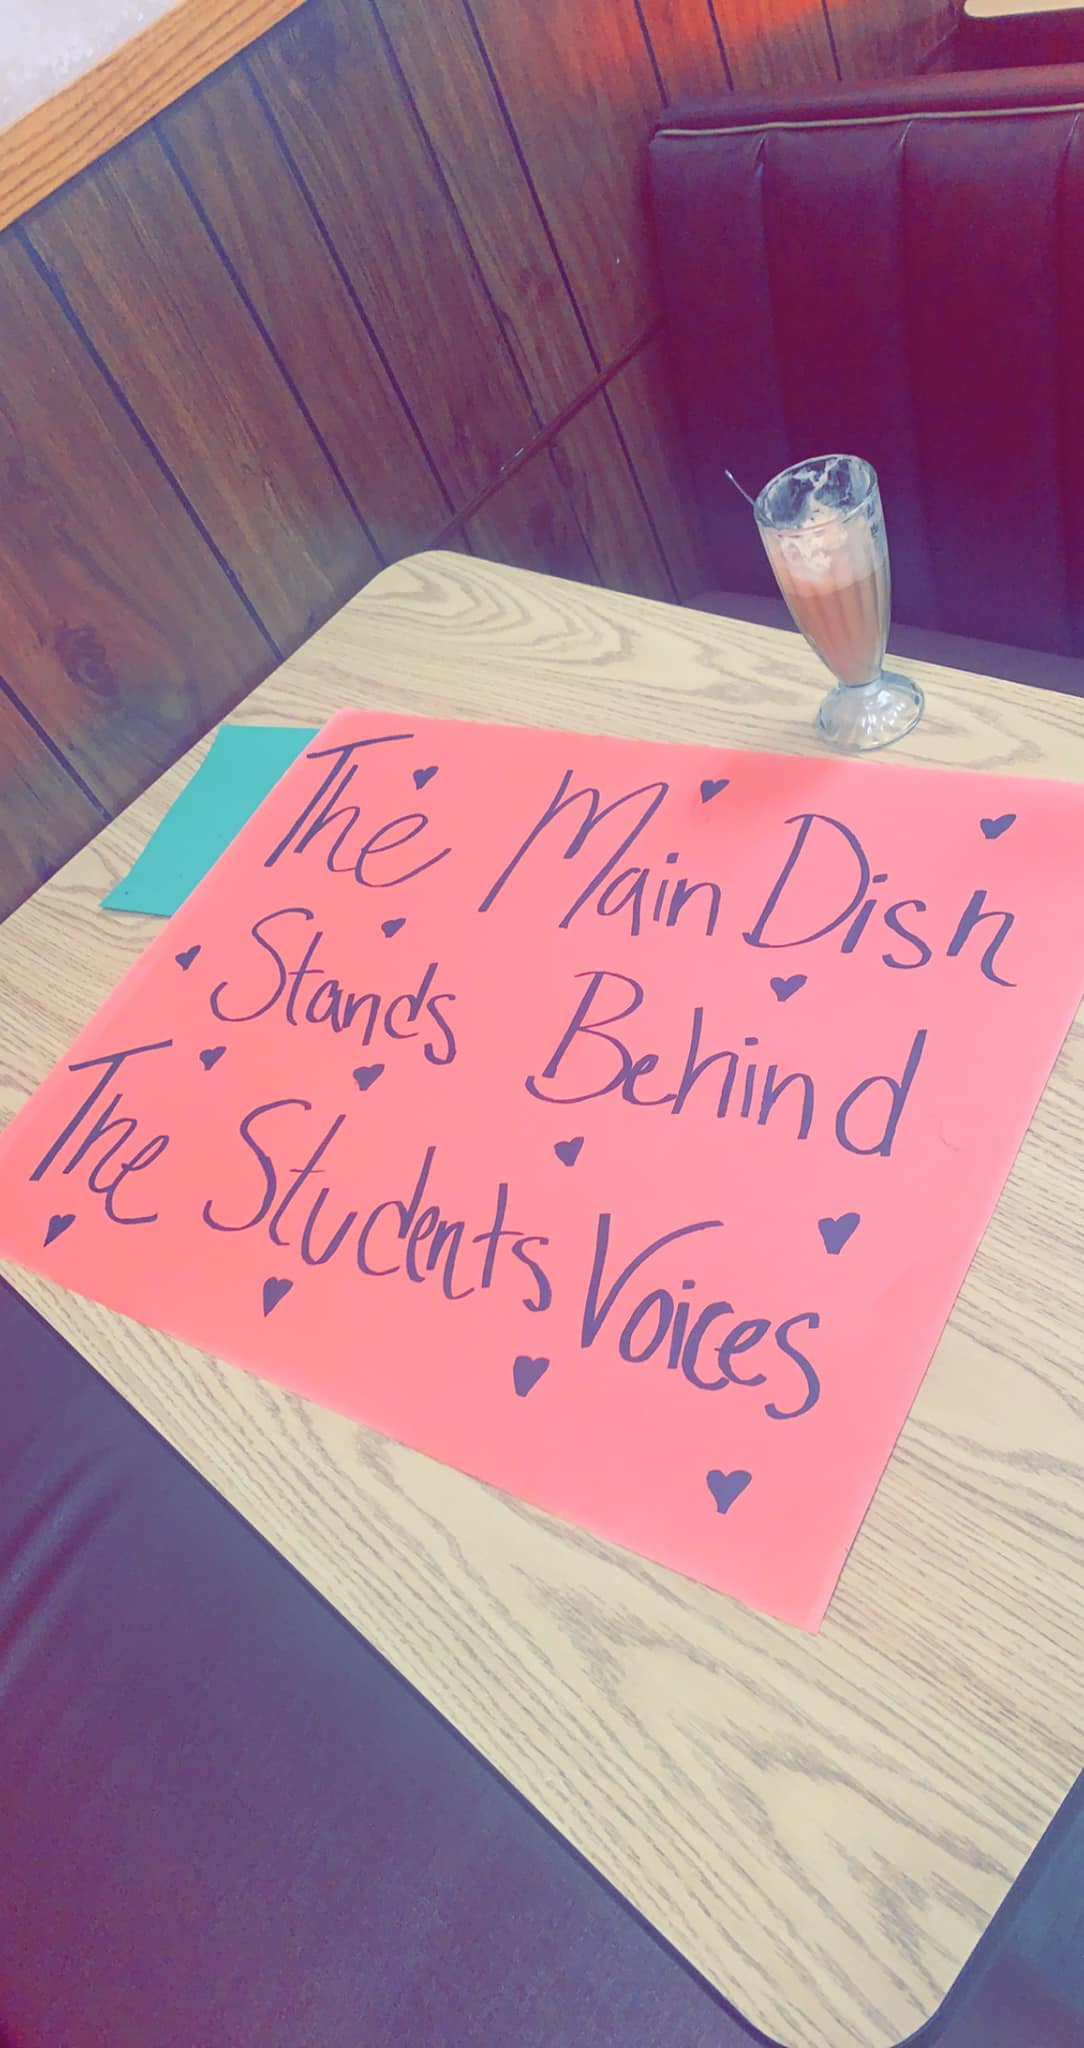 The Main Dish
Stands Behind
The Students Voices